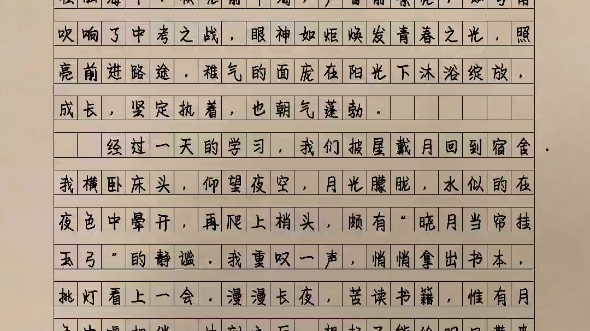 吹响了中考之战，眼神如炬焕发青春之光，照
亮前进路途。稚气的面庞在阳光下沐浴绽放，
成长，坚定执着，也朝气蓬勃。
经过一天的学习，我们披星戴月回到宿舍．
我横卧床头，仰望夜空，月光朦胧，水似的在
夜色中晕开，再爬上梢头，颇有“晓月当帘挂
玉弓”的静谧。我重叹一声，悄悄拿出书本，
挑灯看上一会。漫漫长夜，苦读书籍，惟有月